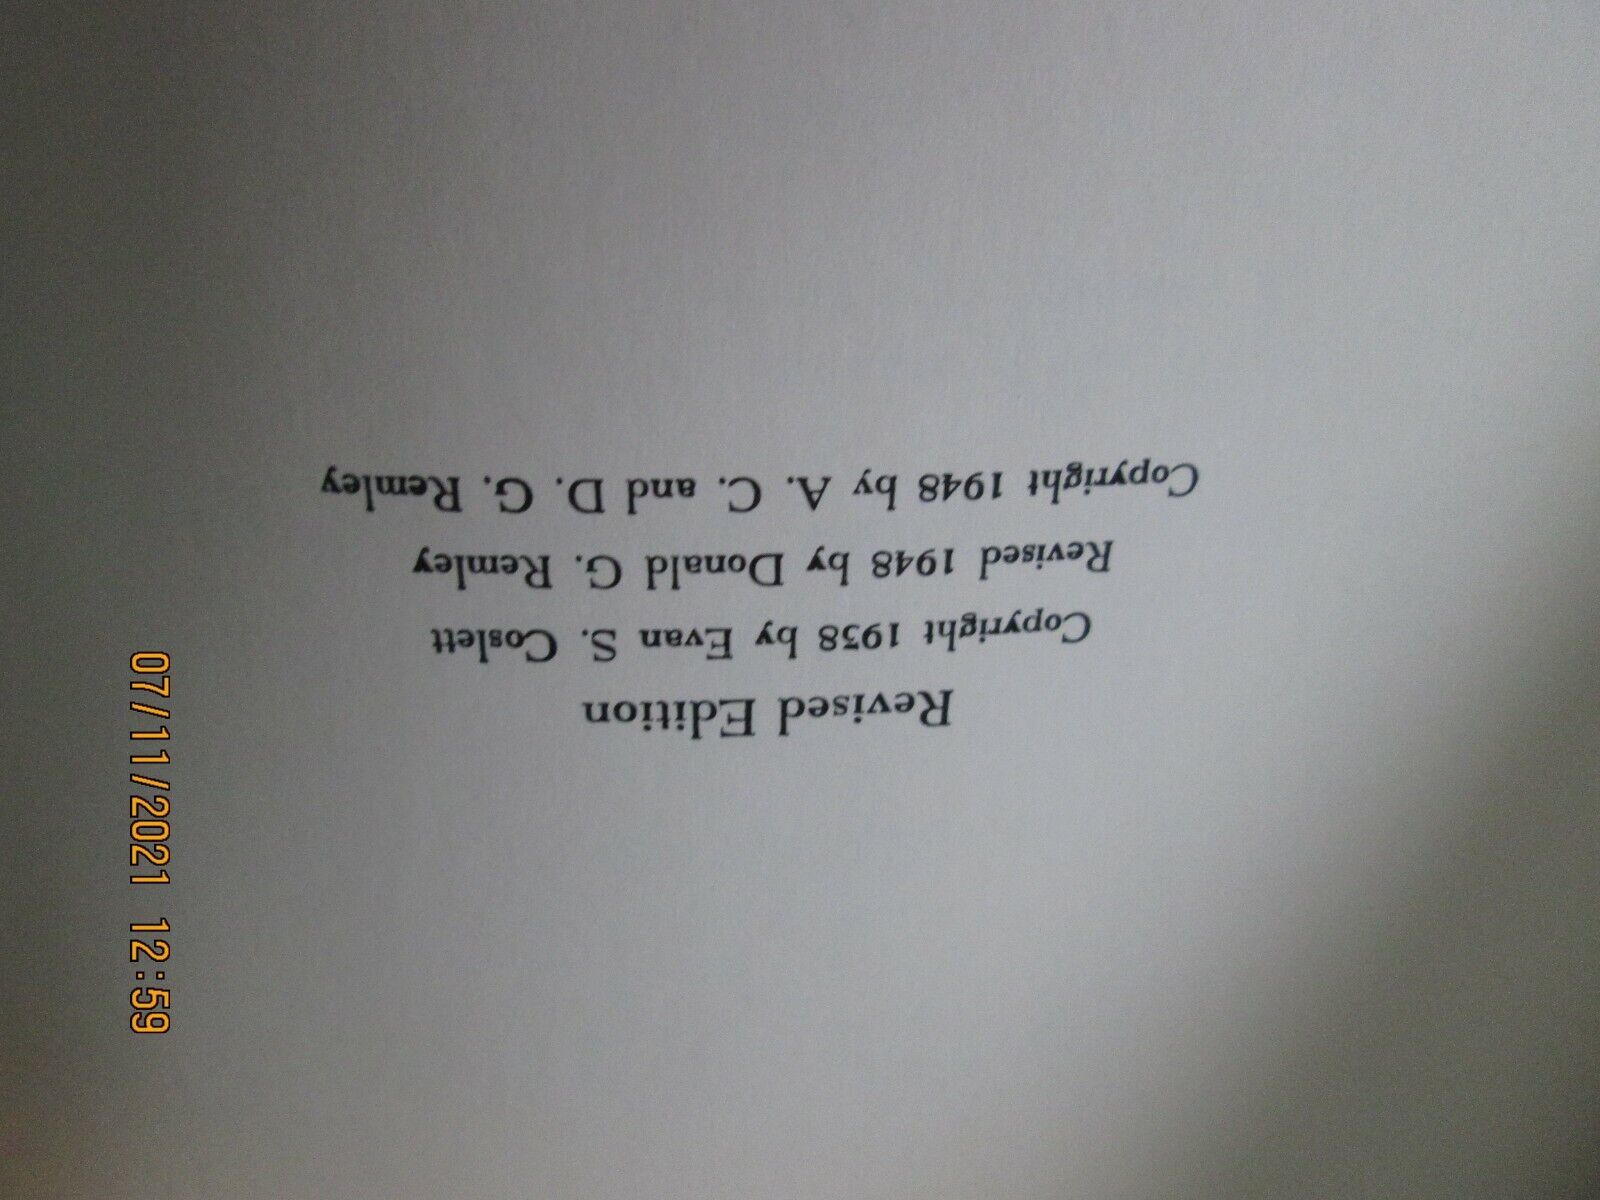 Revised Edition
Copyright 1938 by Evan S. Coslett
Revised 1948 by Donald G. Remley
Copyright 1948 by A. C. and D. G. Remley
07/11/2021 12:59